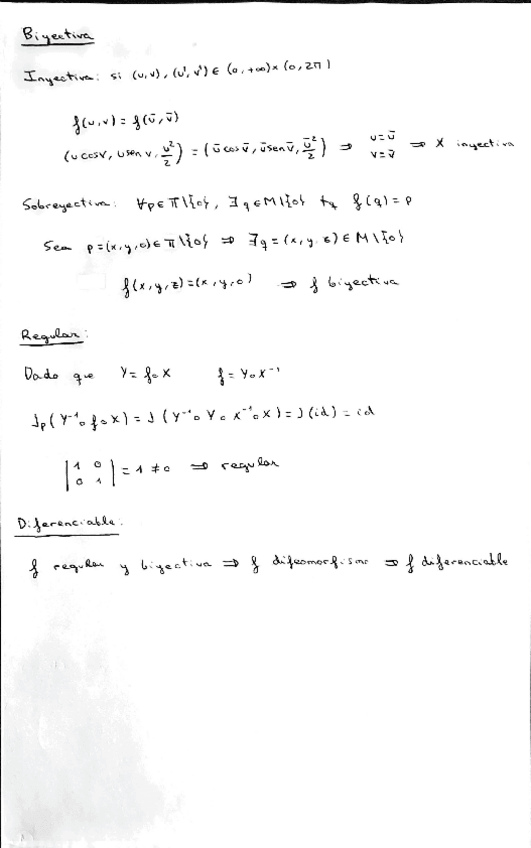 Biyectiva
Inyectiva: si (u,v), (u',v') ∈ (0,+∞)×(0,2π)
f(u,v) = f(ū,v̄)
(u cosv, u sen v, u²/2) = (ū cos v̄, ū sen v̄, ū²/2) ⇒ u=ū v=v̄ ⇒ X inyectiva
Sobreyectiva: ∀p∈π\{0}, ∃q∈M\{0} tq f(q)=p
Sea p=(x,y,0)∈π\{0} ⇒ ∃q=(x,y,z)∈M\{0}
f(x,y,z)=(x,y,0) ⇒ f biyectiva
Regular:
Dado que Y=f∘X f=Y∘X⁻¹
Jp(Y⁻¹∘f∘X) = J(Y⁻¹∘Y∘X⁻¹∘X) = J(id) = id
|1 0
0 1| = 1 ≠ 0 ⇒ regular
Diferenciable:
f regular y biyectiva ⇒ f difeomorfismo ⇒ f diferenciable